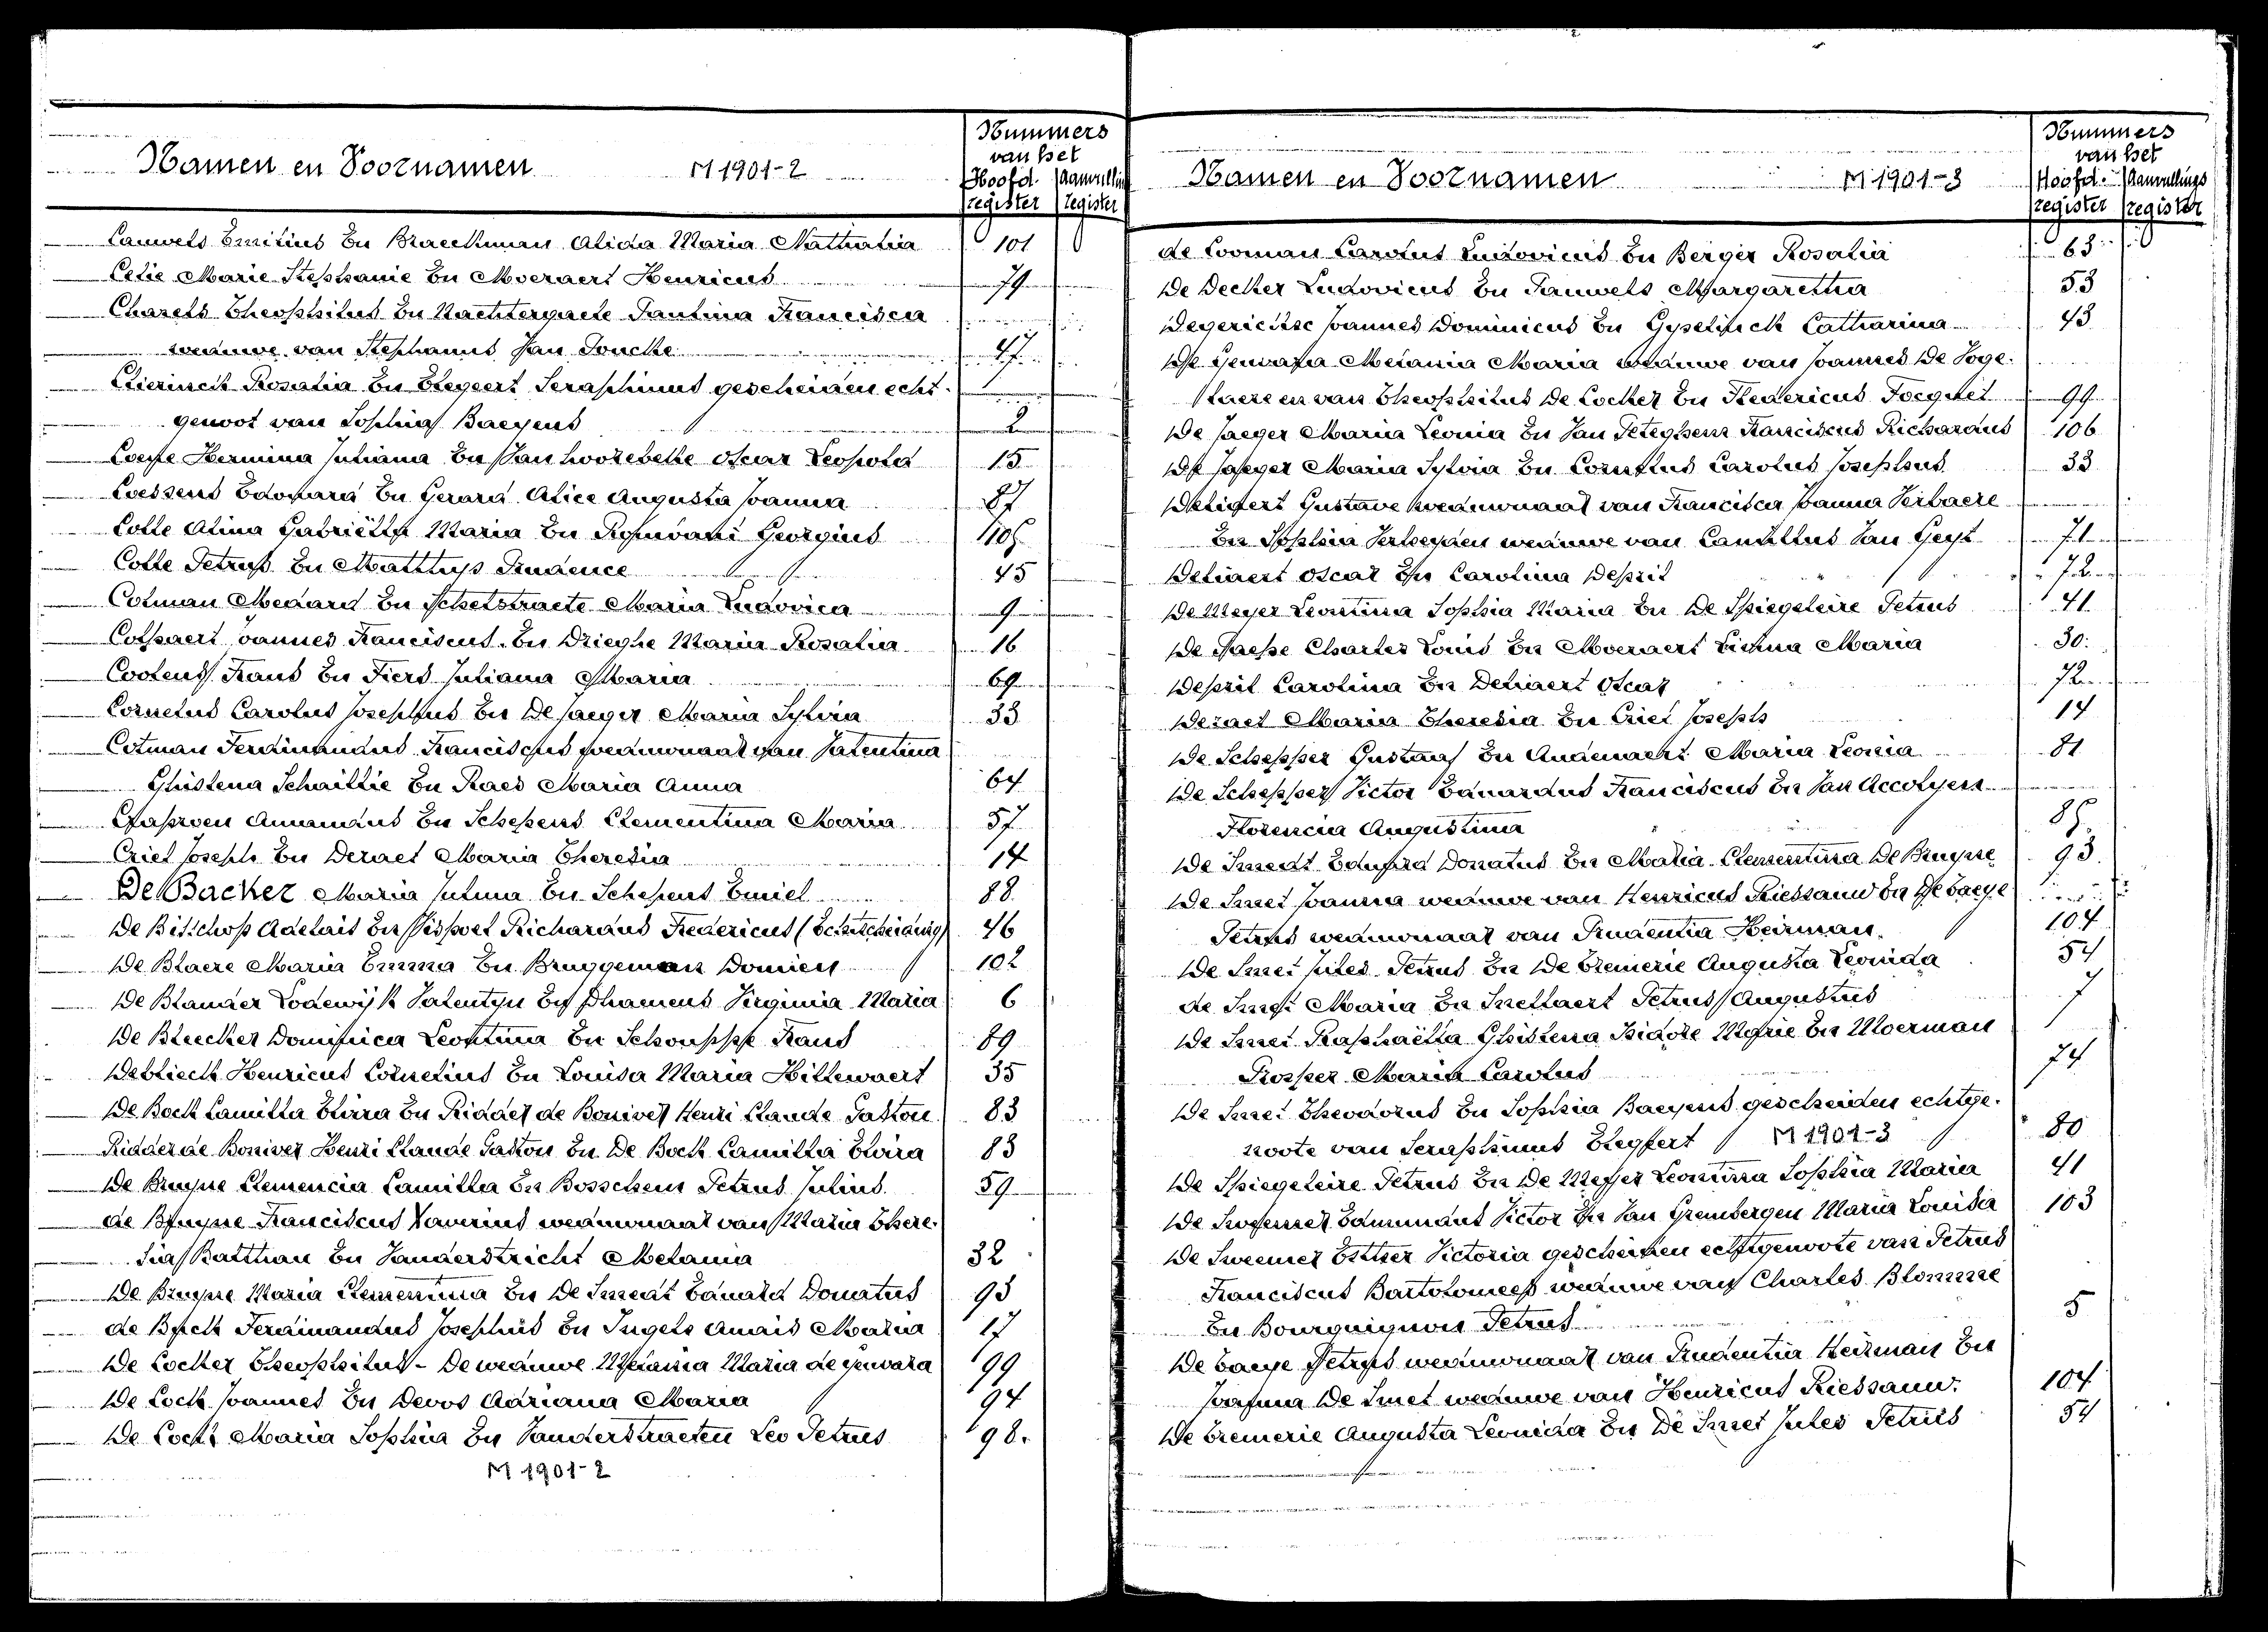 Namen en Voornamen M 1901-2
Nummers
van het
Hoofd Aanvulling
register register
Cauwels Emilius En Braeckman Alida Maria Nathalia 101
Celie Marie Stephanie En Moernaert Henricus 79
Charels Theophilus En Nachtergaele Paulina Francisca
weduwe van Stephanus Van Loucke 47
Clierinck Rosalia En Steyaert Seraphinus gescheiden echt-
genoot van Sophia Baeyens 2
Hermina Juliana En Van hoorebeke Oscar Leopold 15
Coessens Edouard En Gerard Alice Augusta Joanna 87
Colle Alina Gabriella Maria En Georgius 105
Colle Petrus En Matthys Prudence 45
Colman Medard En Schelstraete Maria Ludovica 9
Colpaert Joannes Franciscus En Drieghe Maria Rosalia 16
Coolens Frans En Fiers Juliana Maria 69
Cornelus Carolus Josephus En De Jaeger Maria Sylvia 33
Cotman Ferdinandus Franciscus weduwnaar van Valentina
Ghislena Schaillie En Raes Maria Anna 64
Amandus En Schepens Clementina Maria 57
Criel Joseph En Deraet Maria Theresia 14
De Backer Maria Julma En Schepens Emiel 88
De Bisschop Adelais En Richardus Fredericus (Echtscheiding) 46
De Blaere Maria Emma En Bruggeman Domien 102
De Blander Lodewijk Valentyn En Dhamens Virginia Maria 6
De Bleecker Dominica Leontina En Schouppe Frans 89
Deblieck Henricus Cornelius En Louisa Maria Hillewaert 35
De Bock Camilla Elvira En Ridder de Boniver Henri Claude Gaston 83
Ridder de Boniver Henri Claude Gaston En De Bock Camilla Elvira 83
De Bruyne Clemencia Camilla En Bosschem Petrus Julius 59
de Bruyne Franciscus Xaverius weduwnaar van Maria There-
sia Batthan En Vanderstricht Melania 32
De Bruyne Maria Clementina En De Smedt Eduard Donatus 93
de Buck Ferdinandus Josephus En Ingels Anais Maria 17
De Cocker Theophilus - De weduwe Melania Maria de Gevvara 99
De Cock Joannes En Devos Adriana Maria 94
De Cock Maria Sophia En Vanderstraeten Leo Petrus 98.
M 1901-2
Namen en Voornamen M 1901-3
Nummers
van het
Hoofd- Aanvullings
register register
de Cooman Carolus Ludovicus En Berger Rosalia 63
De Decker Ludovicus En Pauwels Margaretha 53
Degerickse Joannes Dominicus En Gyselinck Catharina 43
De Melania Maria weduwe van Joannes De Voge-
laere en van Theophilus De Cocker En Fredericus 99
De Jaeger Maria Leonia En Van Peteghem Franciscus Richardus 106
De Jaeger Maria Sylvia En Cornelus Carolus Josephus 33
Gustave weduwnaar van Francisca Joanna Verbaere
En Sophia Verheyden weduwe van Camillus Van Geyt 71
Delivaert Oscar En Carolina Desprit 72
De Meyer Leontina Sophia Maria En De Spiegeleire Petrus 41
De Paepe Charles Louis En Moernaert Maria 30.
Desprit Carolina En Delivaert Oscar 72
Deraet Maria Theresia En Criel Joseph 14
De Schepper Gustaaf En Audenaert Maria Leonia 81
De Schepper Victor Eduardus Franciscus En Van Accolyen
Florencia Augustina 85
De Smedt Eduard Donatus En Maria Clementina De Bruyne 93
De Smet Joanna weduwe van Henricus Riessauw En De baeye
Petrus weduwnaar van Prudentia Heirman. 104
De Smet Jules Petrus En De Bremerie Augusta Leonida 54
de Smet Maria En Snellaert Petrus Augustus 7
De Smet Raphaella Ghislena Isidore Marie En Moerman
Prosper Maria Carolus 74
De Smet Theodorus En Sophia Baeyens gescheiden echtge-
noote van Seraphinus Steyaert M 1901-3 80
De Spiegeleire Petrus En De Meyer Leontina Sophia Maria 41
De Edmundus Victor En Van Grembergen Maria Louisa 103
De Sweemer Esther Victoria gescheiden echtgenoote van Petrus
Franciscus Bartolomees weduwe van Charles Blomme
En Bourguignon Petrus 5
De baeye Petrus weduwnaar van Prudentia Heirman En
Joanna De Smet weduwe van Henricus Riessauw. 104
De Bremerie Augusta Leonida En De Smet Jules Petrus 54